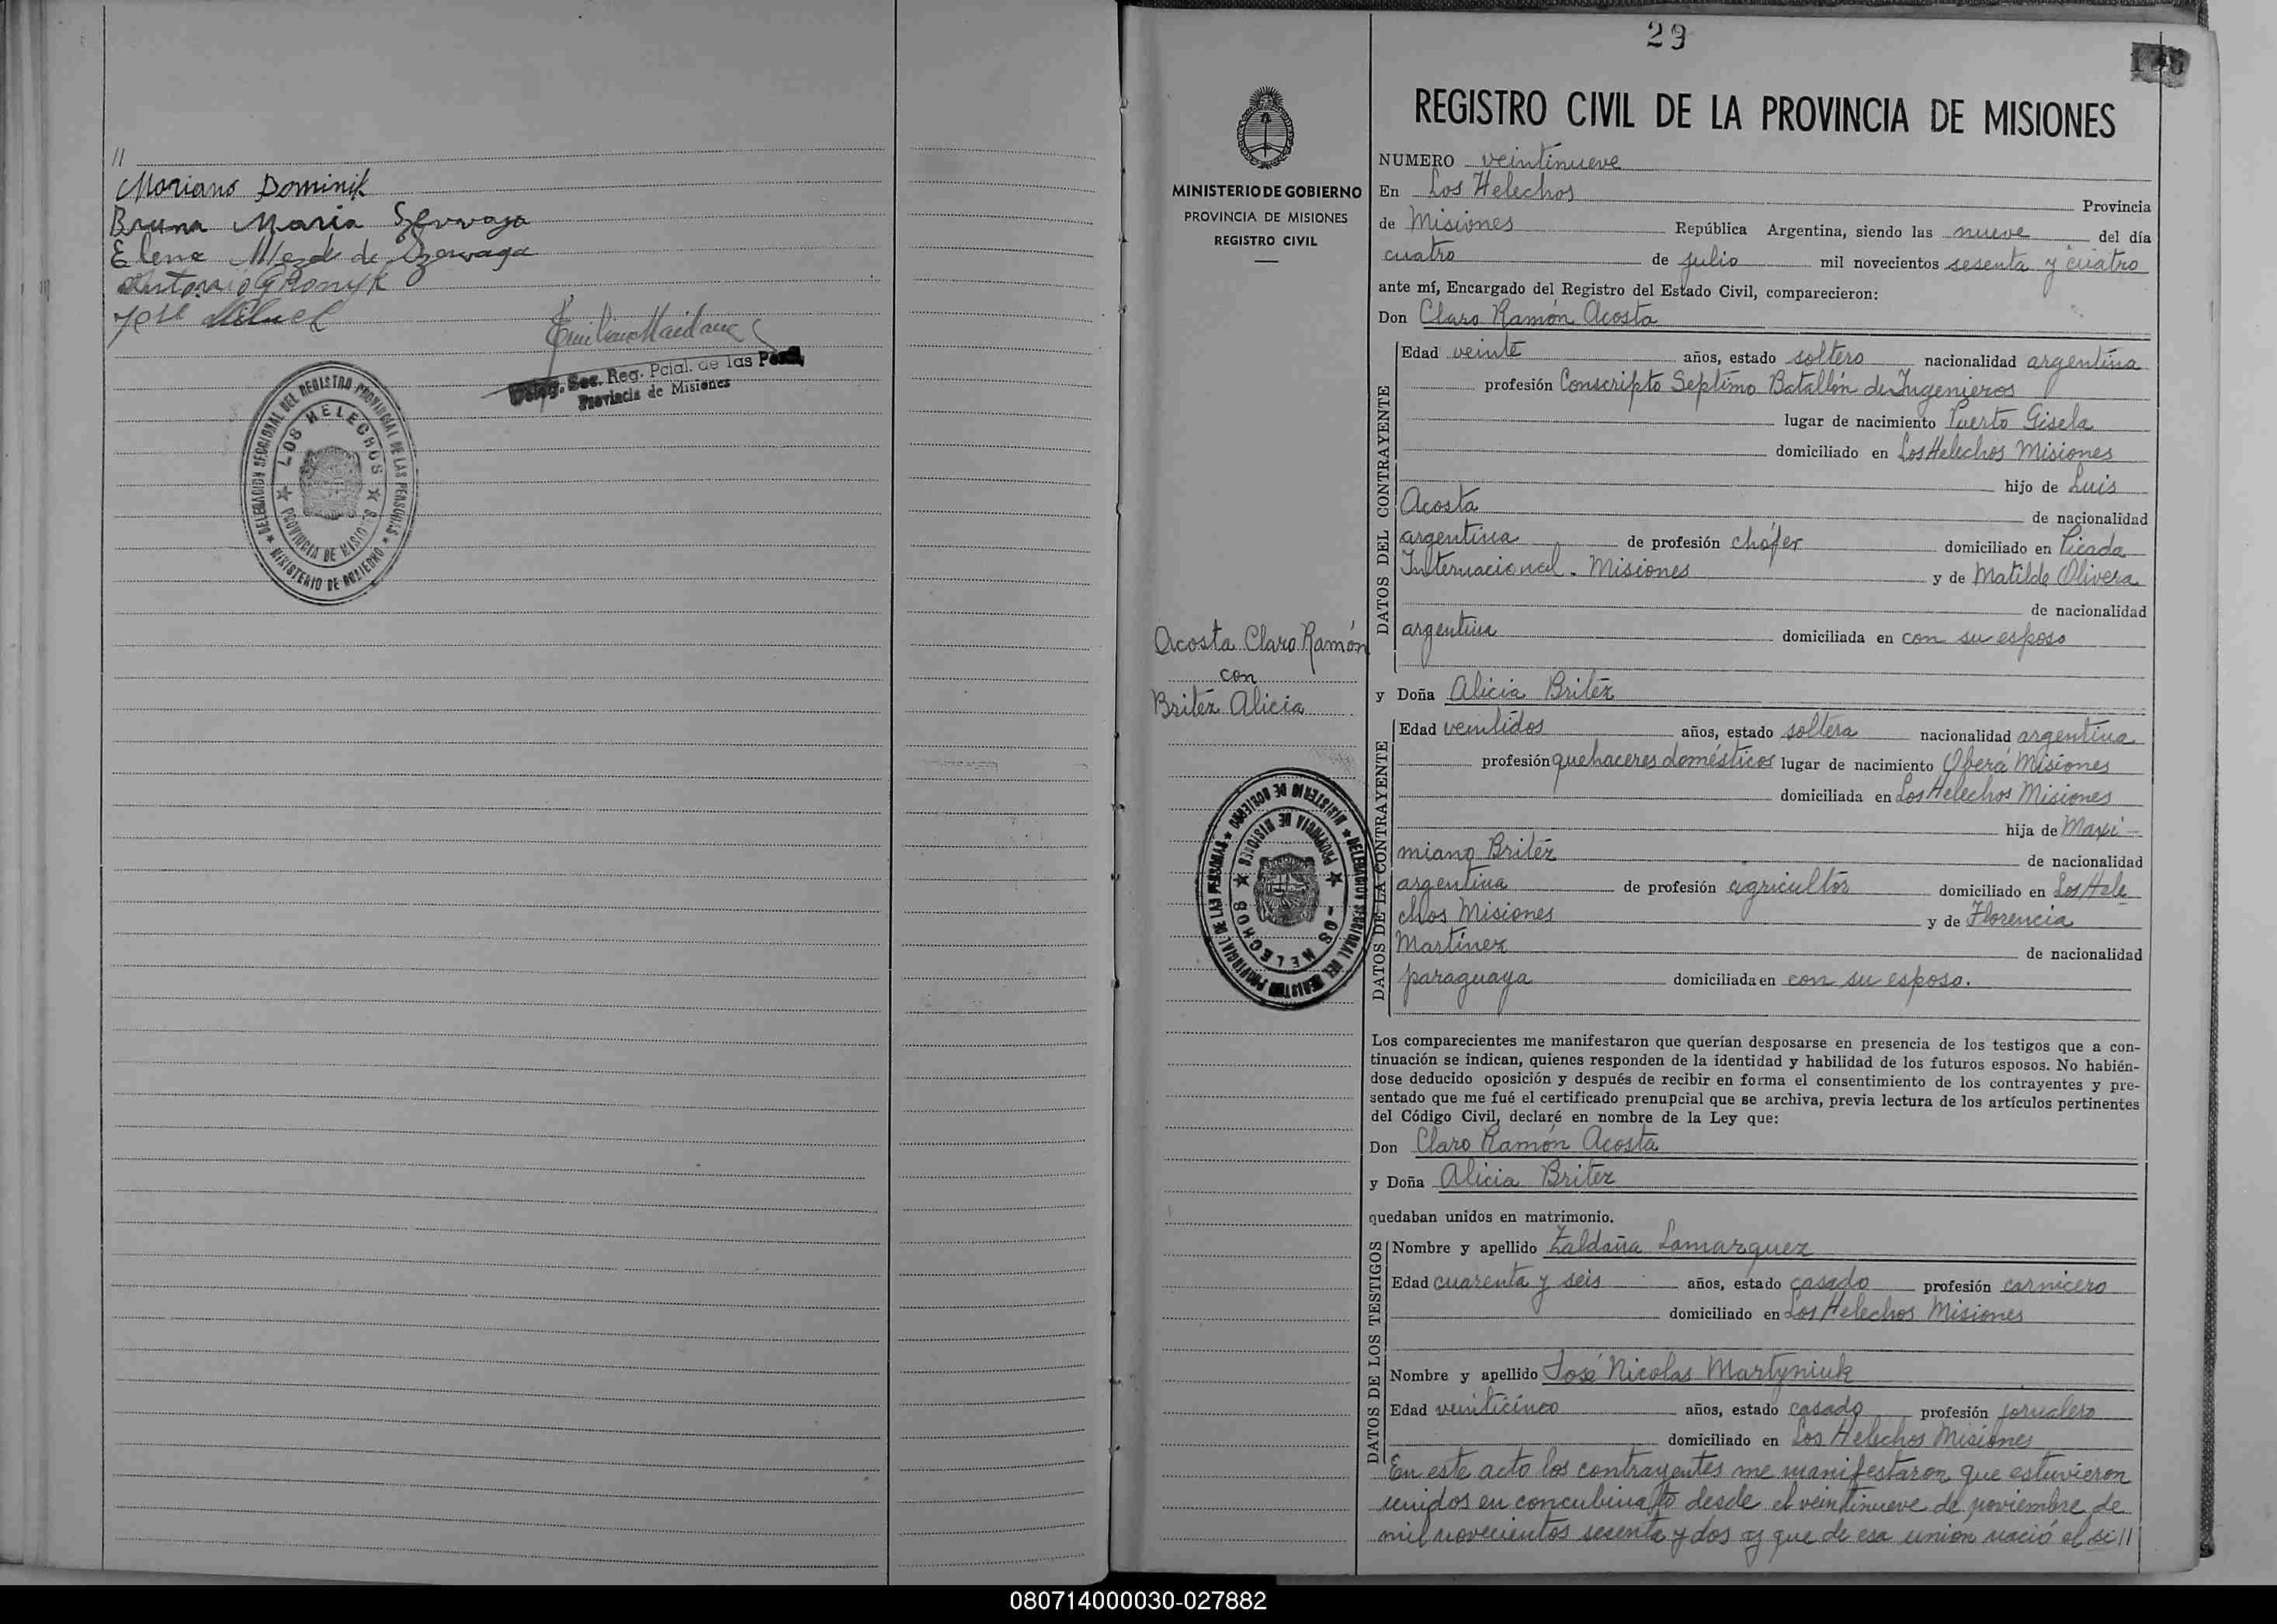 //
Mariano Dominik
Bruna Maria Szewaga
Elena de Szewaga
Antonio
José
Emiliano
Deleg. Sec. Reg. Pcial. de las Pers.
Provincia de Misiones
DELEGACION SECCIONAL DEL REGISTRO PROVINCIAL DE LAS PERSONAS
★ MINISTERIO DE GOBIERNO ★
LOS HELECHOS
★ PROVINCIA DE MISIONES ★
29
MINISTERIO DE GOBIERNO
PROVINCIA DE MISIONES
REGISTRO CIVIL
Acosta Claro Ramón
con
Britéz Alicia
DELEGACION SECCIONAL DEL REGISTRO PROVINCIAL DE LAS PERSONAS
★ MINISTERIO DE GOBIERNO ★
LOS HELECHOS
★ PROVINCIA DE MISIONES ★
REGISTRO CIVIL DE LA PROVINCIA DE MISIONES
NUMERO veintinueve
En Los Helechos Provincia
de Misiones República Argentina, siendo las nueve del día
cuatro de julio mil novecientos sesenta y cuatro
ante mí, Encargado del Registro del Estado Civil, comparecieron:
Don Claro Ramón Acosta
DATOS DEL CONTRAYENTE
Edad veinte años, estado soltero nacionalidad argentina
profesión Conscripto Septimo Batallón de Ingenieros
lugar de nacimiento Puerto Gisela
domiciliado en Los Helechos Misiones
hijo de Luis
Acosta de nacionalidad
argentina de profesión chófer domiciliado en Picada
Internacional - Misiones y de Matilde Olivera
de nacionalidad
argentina domiciliada en con su esposo
y Doña Alicia Britéz
DATOS DE LA CONTRAYENTE
Edad veintidos años, estado soltera nacionalidad argentina
profesión quehaceres domésticos lugar de nacimiento Oberá Misiones
domiciliada en Los Helechos Misiones
hija de Maxi-
miano Britéz de nacionalidad
argentina de profesión agricultor domiciliado en Los Hele
chos Misiones y de Florencia
Martínez de nacionalidad
paraguaya domiciliada en con su esposo.
Los comparecientes me manifestaron que querían desposarse en presencia de los testigos que a con-
tinuación se indican, quienes responden de la identidad y habilidad de los futuros esposos. No habién-
dose deducido oposición y después de recibir en forma el consentimiento de los contrayentes y pre-
sentado que me fué el certificado prenupcial que se archiva, previa lectura de los artículos pertinentes
del Código Civil, declaré en nombre de la Ley que:
Don Claro Ramón Acosta
y Doña Alicia Britez
quedaban unidos en matrimonio.
DATOS DE LOS TESTIGOS
Nombre y apellido Zaldaña Lamarquez
Edad cuarenta y seis años, estado casado profesión carnicero
domiciliado en Los Helechos Misiones
Nombre y apellido José Nicolas Martyniuk
Edad veinticinco años, estado casado profesión jornalero
domiciliado en Los Helechos Misiones
En este acto los contrayentes me manifestaron que estuvieron
unidos en concubinato desde el veintinueve de noviembre de
mil novecientos sesenta y dos y que de esa unión nació el si//
080714000030-027882